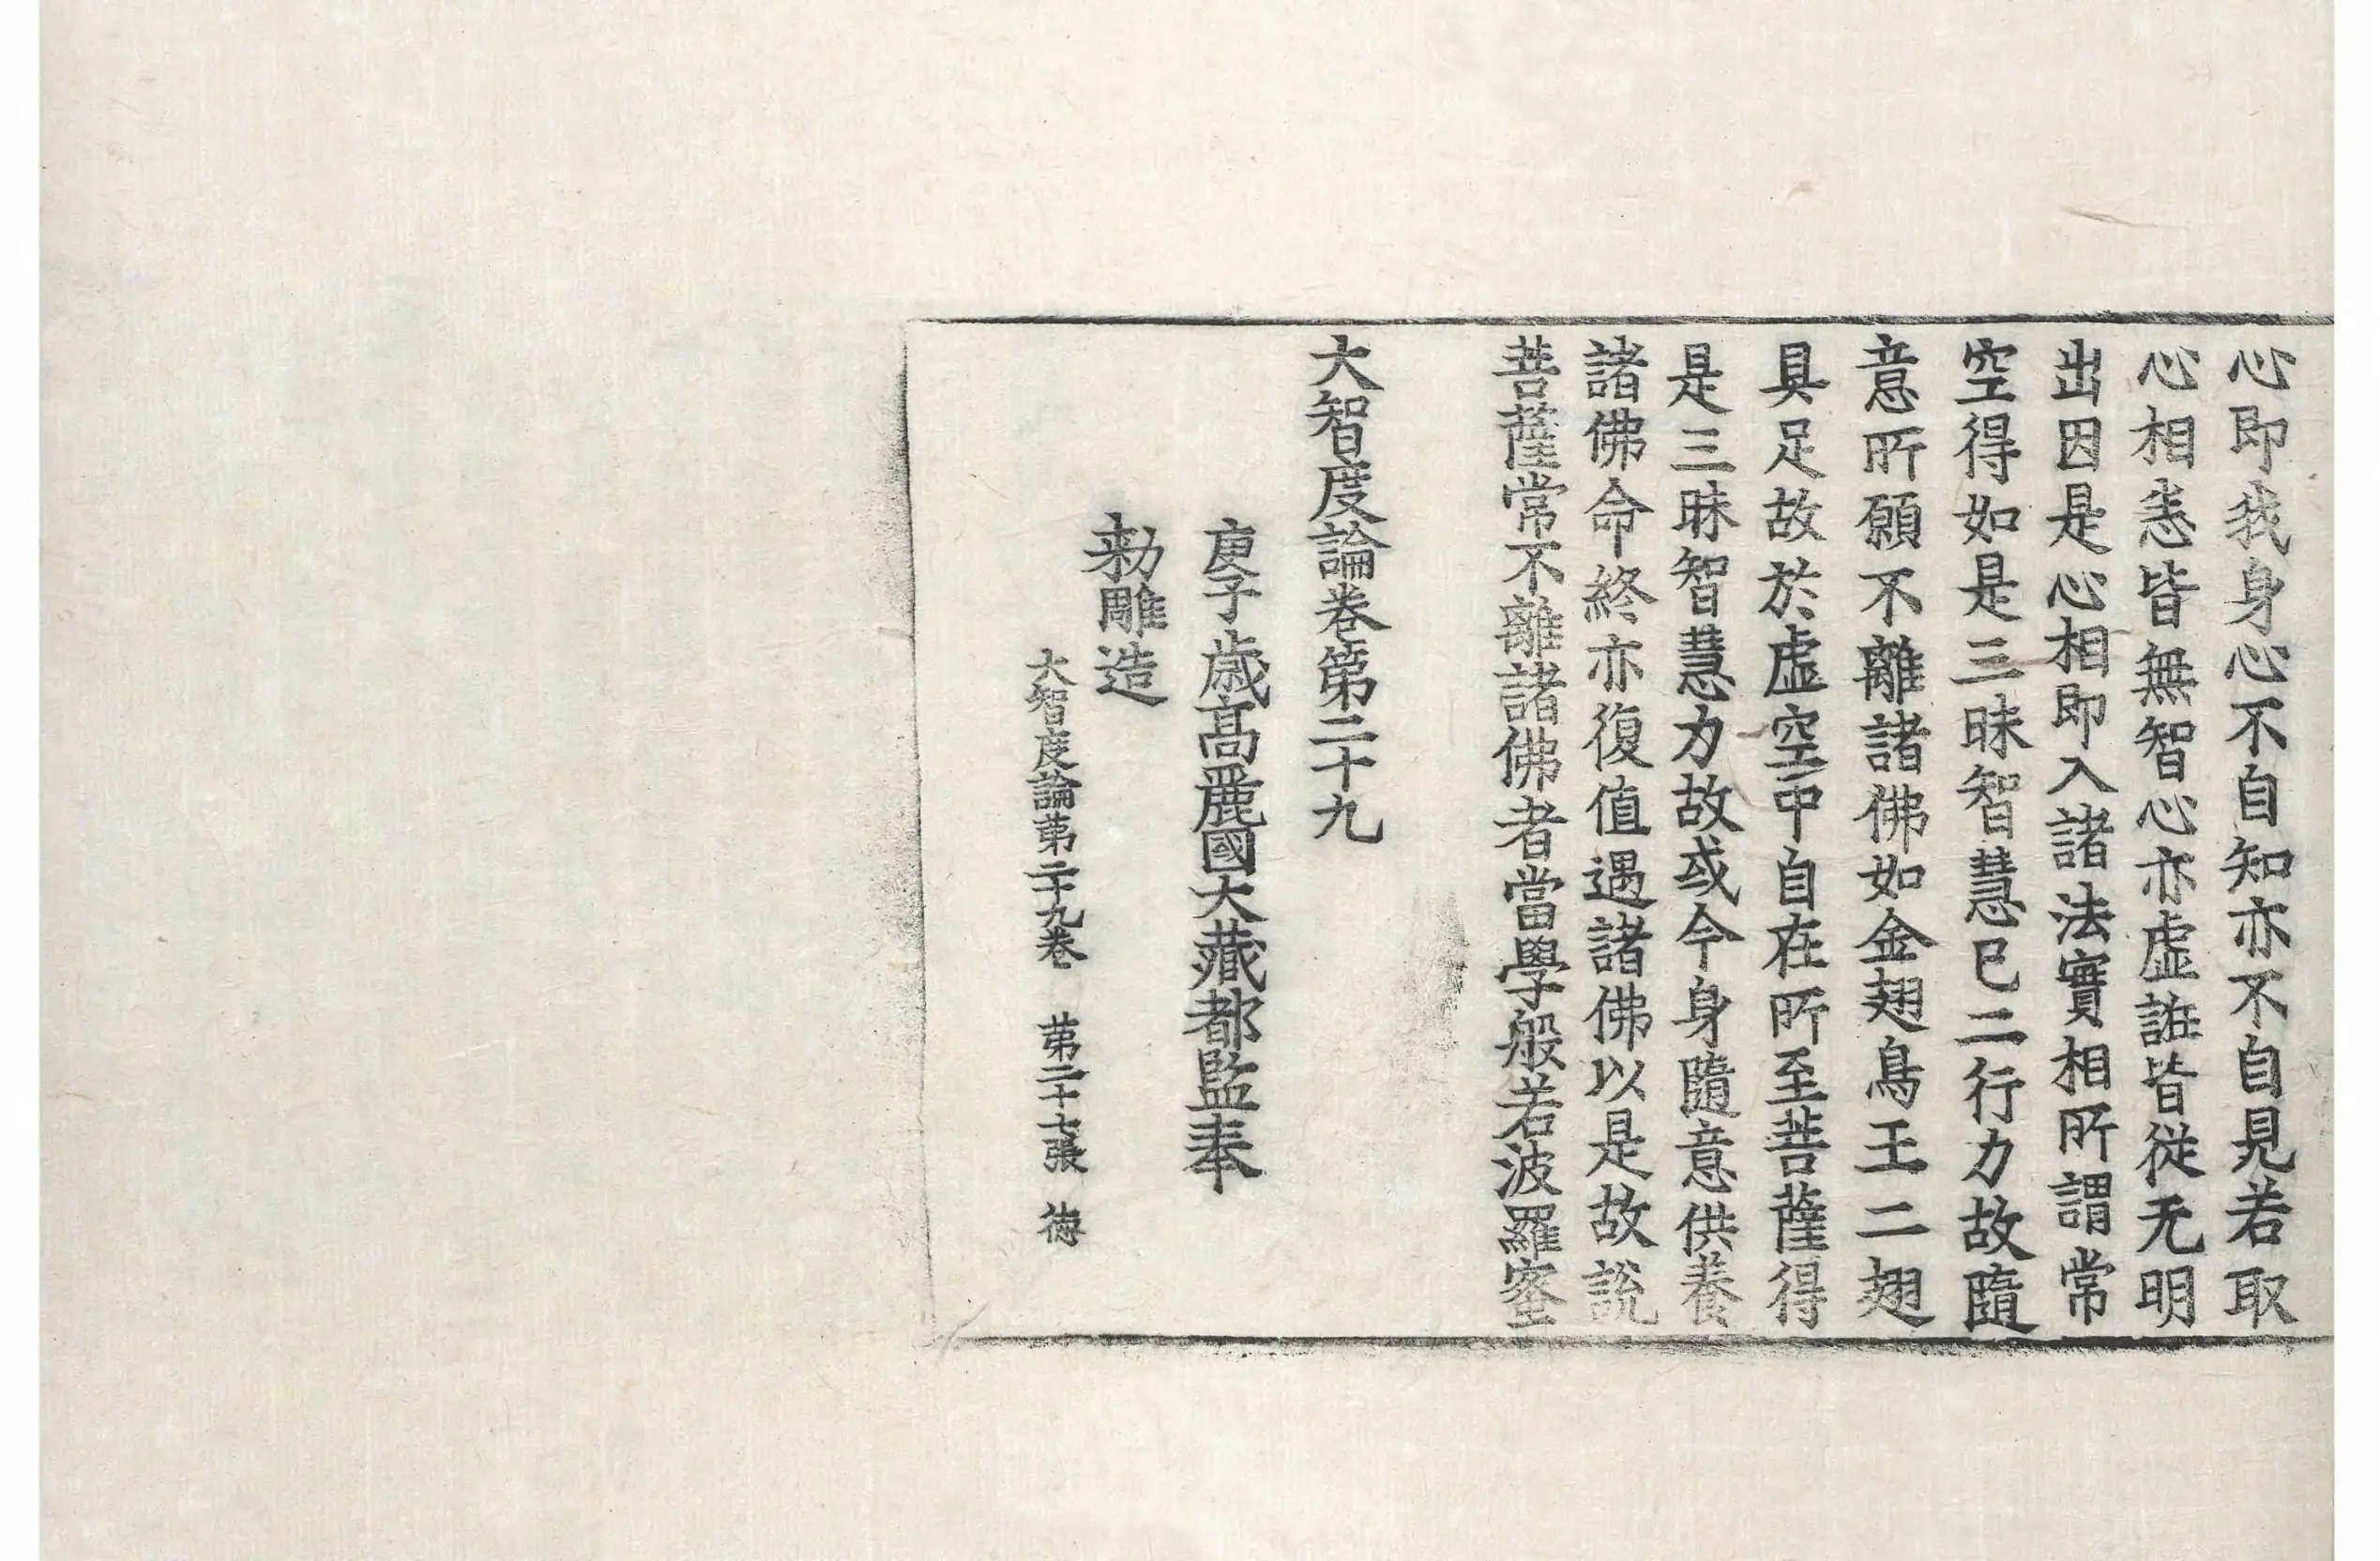 心即我身心不自知亦不自見若取
心相悉皆無智心亦虛誑皆從无明
出因是心相即入諸法實相所謂常
空得如是三昧智慧已二行力故隨
意所願不離諸佛如金翅鳥王二翅
具足故於虛空中自在所至菩薩得
是三昧智慧力故或今身隨意供養
諸佛命終亦復值遇諸佛以是故說
菩薩常不離諸佛者當學般若波羅蜜
大智度論卷第二十九
庚子歲高麗國大藏都監奉
勑雕造
大智度論第二十九卷 第二十七張 德